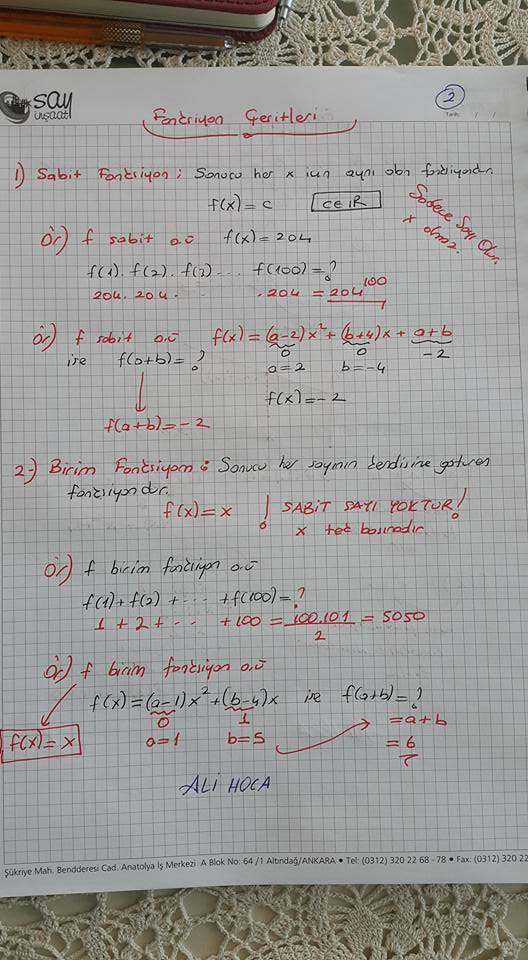 say
inşaat
2
Tarih: / /
Fonksiyon Çeşitleri
1) Sabit Fonksiyon : Sonucu her x için aynı olan fonksiyondur.
f(x) = c   c∈IR
Sadece Sayı Olur.
x olmaz.
Ör) f sabit o.ü f(x) = 204
f(1). f(2). f(3) ... f(100) = ?
204. 204. .204 = 204^100
Ör) f sabit o.ü f(x) = (a-2)x² + (b+4)x + a+b
0 0 -2
ise f(a+b) = ? a=2 b=-4
f(x) = -2
f(a+b) = -2
2-) Birim Fonksiyon : Sonucu her sayının kendisine götüren
fonksiyondur.
f(x) = x ! SABİT SAYI YOKTUR!
x tek başınadır.
Ör) f birim fonksiyon o.ü
f(1) + f(2) + ... + f(100) = ?
1 + 2 + ... + 100 = 100.101/2 = 5050
Ör) f birim fonksiyon o.ü
f(x) = (a-1)x² + (b-4)x ise f(a+b) = ?
0 1 = a+b
f(x) = x a=1 b=5 = 6
ALİ HOCA
Şükriye Mah. Bendderesi Cad. Anatolya İş Merkezi A Blok No: 64 /1 Altındağ/ANKARA • Tel: (0312) 320 22 68 - 78 • Fax: (0312) 320 22